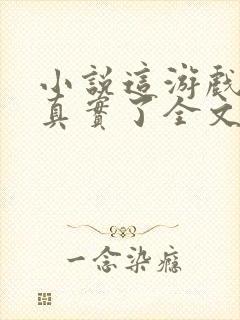 小説這游戲
真實了全文
一念染癮